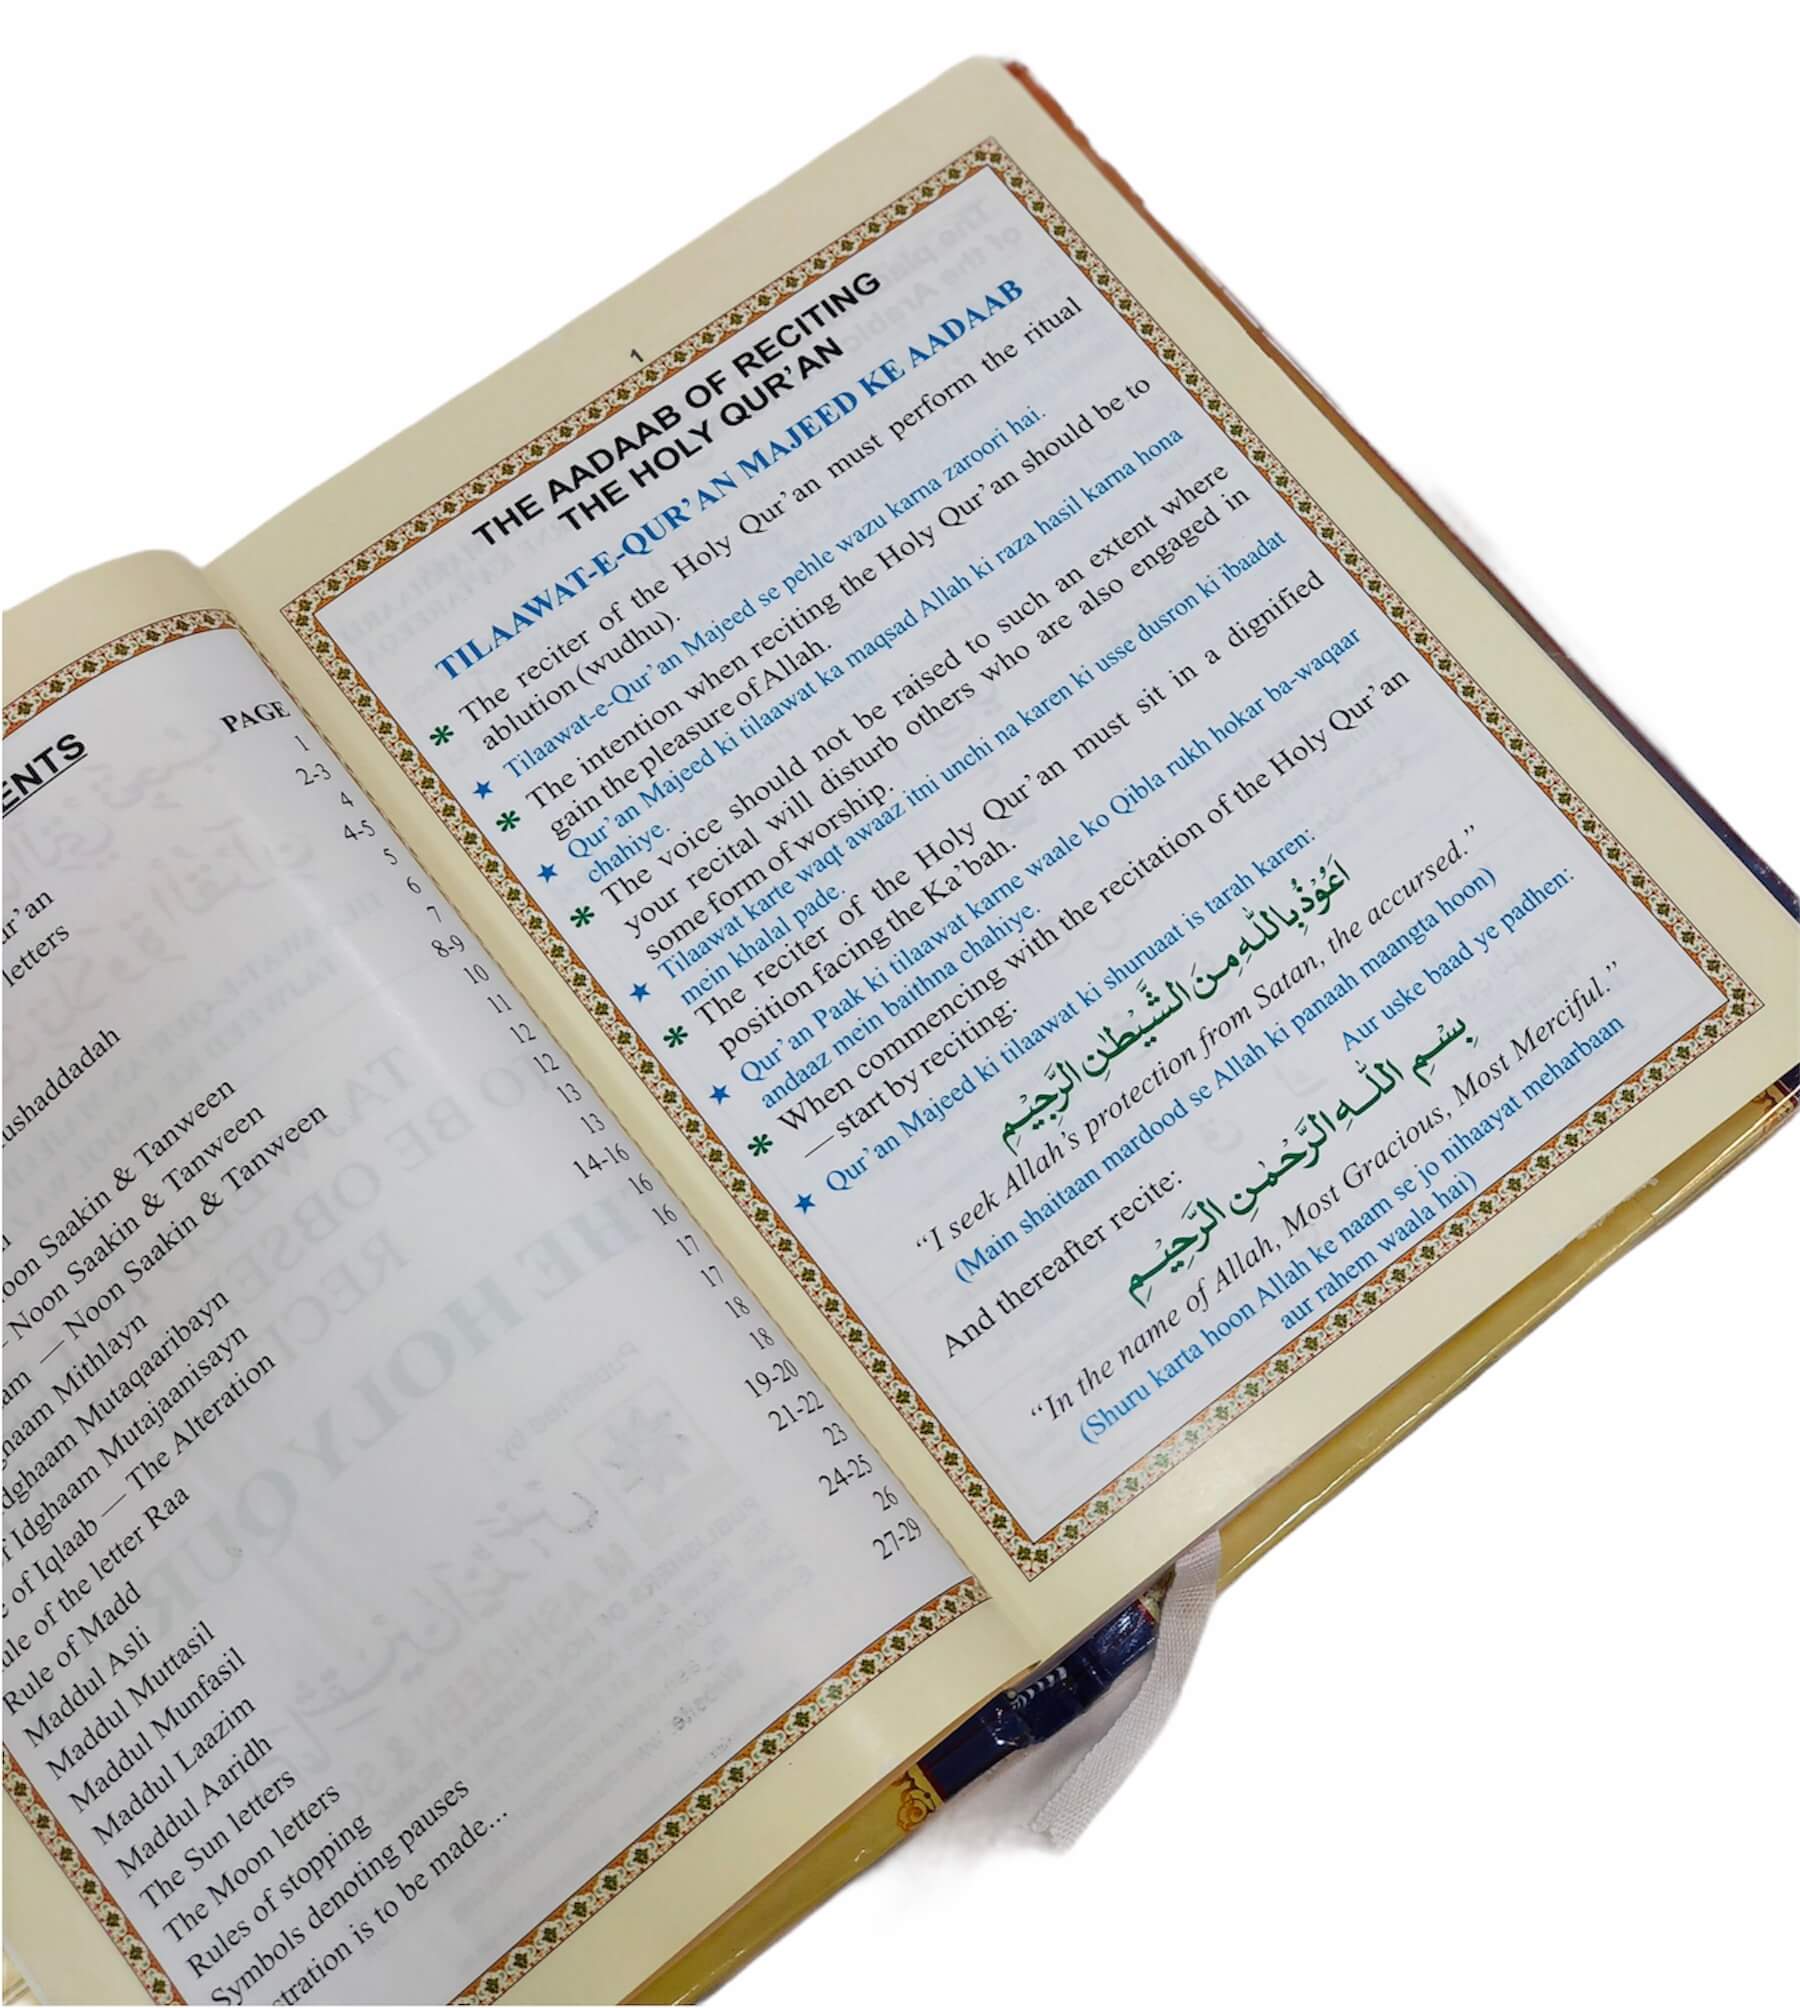 ENTS
PAGE
1
2-3
4
4-5
5
6
7
8-9
10
11
12
12
13
13
14-16
16
16
17
17
18
18
19-20
21-22
23
24-25
26
27-29
ur'an
letters
ushaddadah
oon Saakin & Tanween
— Noon Saakin & Tanween
— Noon Saakin & Tanween
Mithlayn
Idghaam Mutaqaaribayn
f Idghaam Mutajaanisayn
of Iqlaab — The Alteration
of the letter Raa
Rule of Madd
Maddul Asli
Maddul Muttasil
Maddul Munfasil
Maddul Laazim
Maddul Aaridh
The Sun letters
The Moon letters
Rules of stopping
Symbols denoting pauses
stration is to be made...
1
THE AADAAB OF RECITING
THE HOLY QUR'AN
TILAAWAT-E-QUR'AN MAJEED KE AADAAB
* The reciter of the Holy Qur'an must perform the ritual
ablution (wudhu).
★ Tilaawat-e-Qur'an Majeed se pehle wazu karna zaroori hai.
* The intention when reciting the Holy Qur'an should be to
gain the pleasure of Allah.
★ Qur'an Majeed ki tilaawat ka maqsad Allah ki raza hasil karna hona
chahiye.
* The voice should not be raised to such an extent where
your recital will disturb others who are also engaged in
some form of worship.
★ Tilaawat karte waqt awaaz itni unchi na karen ki usse dusron ki ibaadat
mein khalal pade.
* The reciter of the Holy Qur'an must sit in a dignified
position facing the Ka'bah.
★ Qur'an Paak ki tilaawat karne waale ko Qibla rukh hokar ba-waqaar
andaaz mein baithna chahiye.
* When commencing with the recitation of the Holy Qur'an
— start by reciting:
★ Qur'an Majeed ki tilaawat ki shuruaat is tarah karen:
اَعُوْذُ بِاللّٰهِ مِنَ الشَّيْطٰنِ الرَّجِيْمِ
"I seek Allah's protection from Satan, the accursed."
(Main shaitaan mardood se Allah ki panaah maangta hoon)
And thereafter recite: Aur uske baad ye padhen:
بِسْمِ اللّٰهِ الرَّحْمٰنِ الرَّحِيْمِ
"In the name of Allah, Most Gracious, Most Merciful."
(Shuru karta hoon Allah ke naam se jo nihaayat meharbaan
aur rahem waala hai)